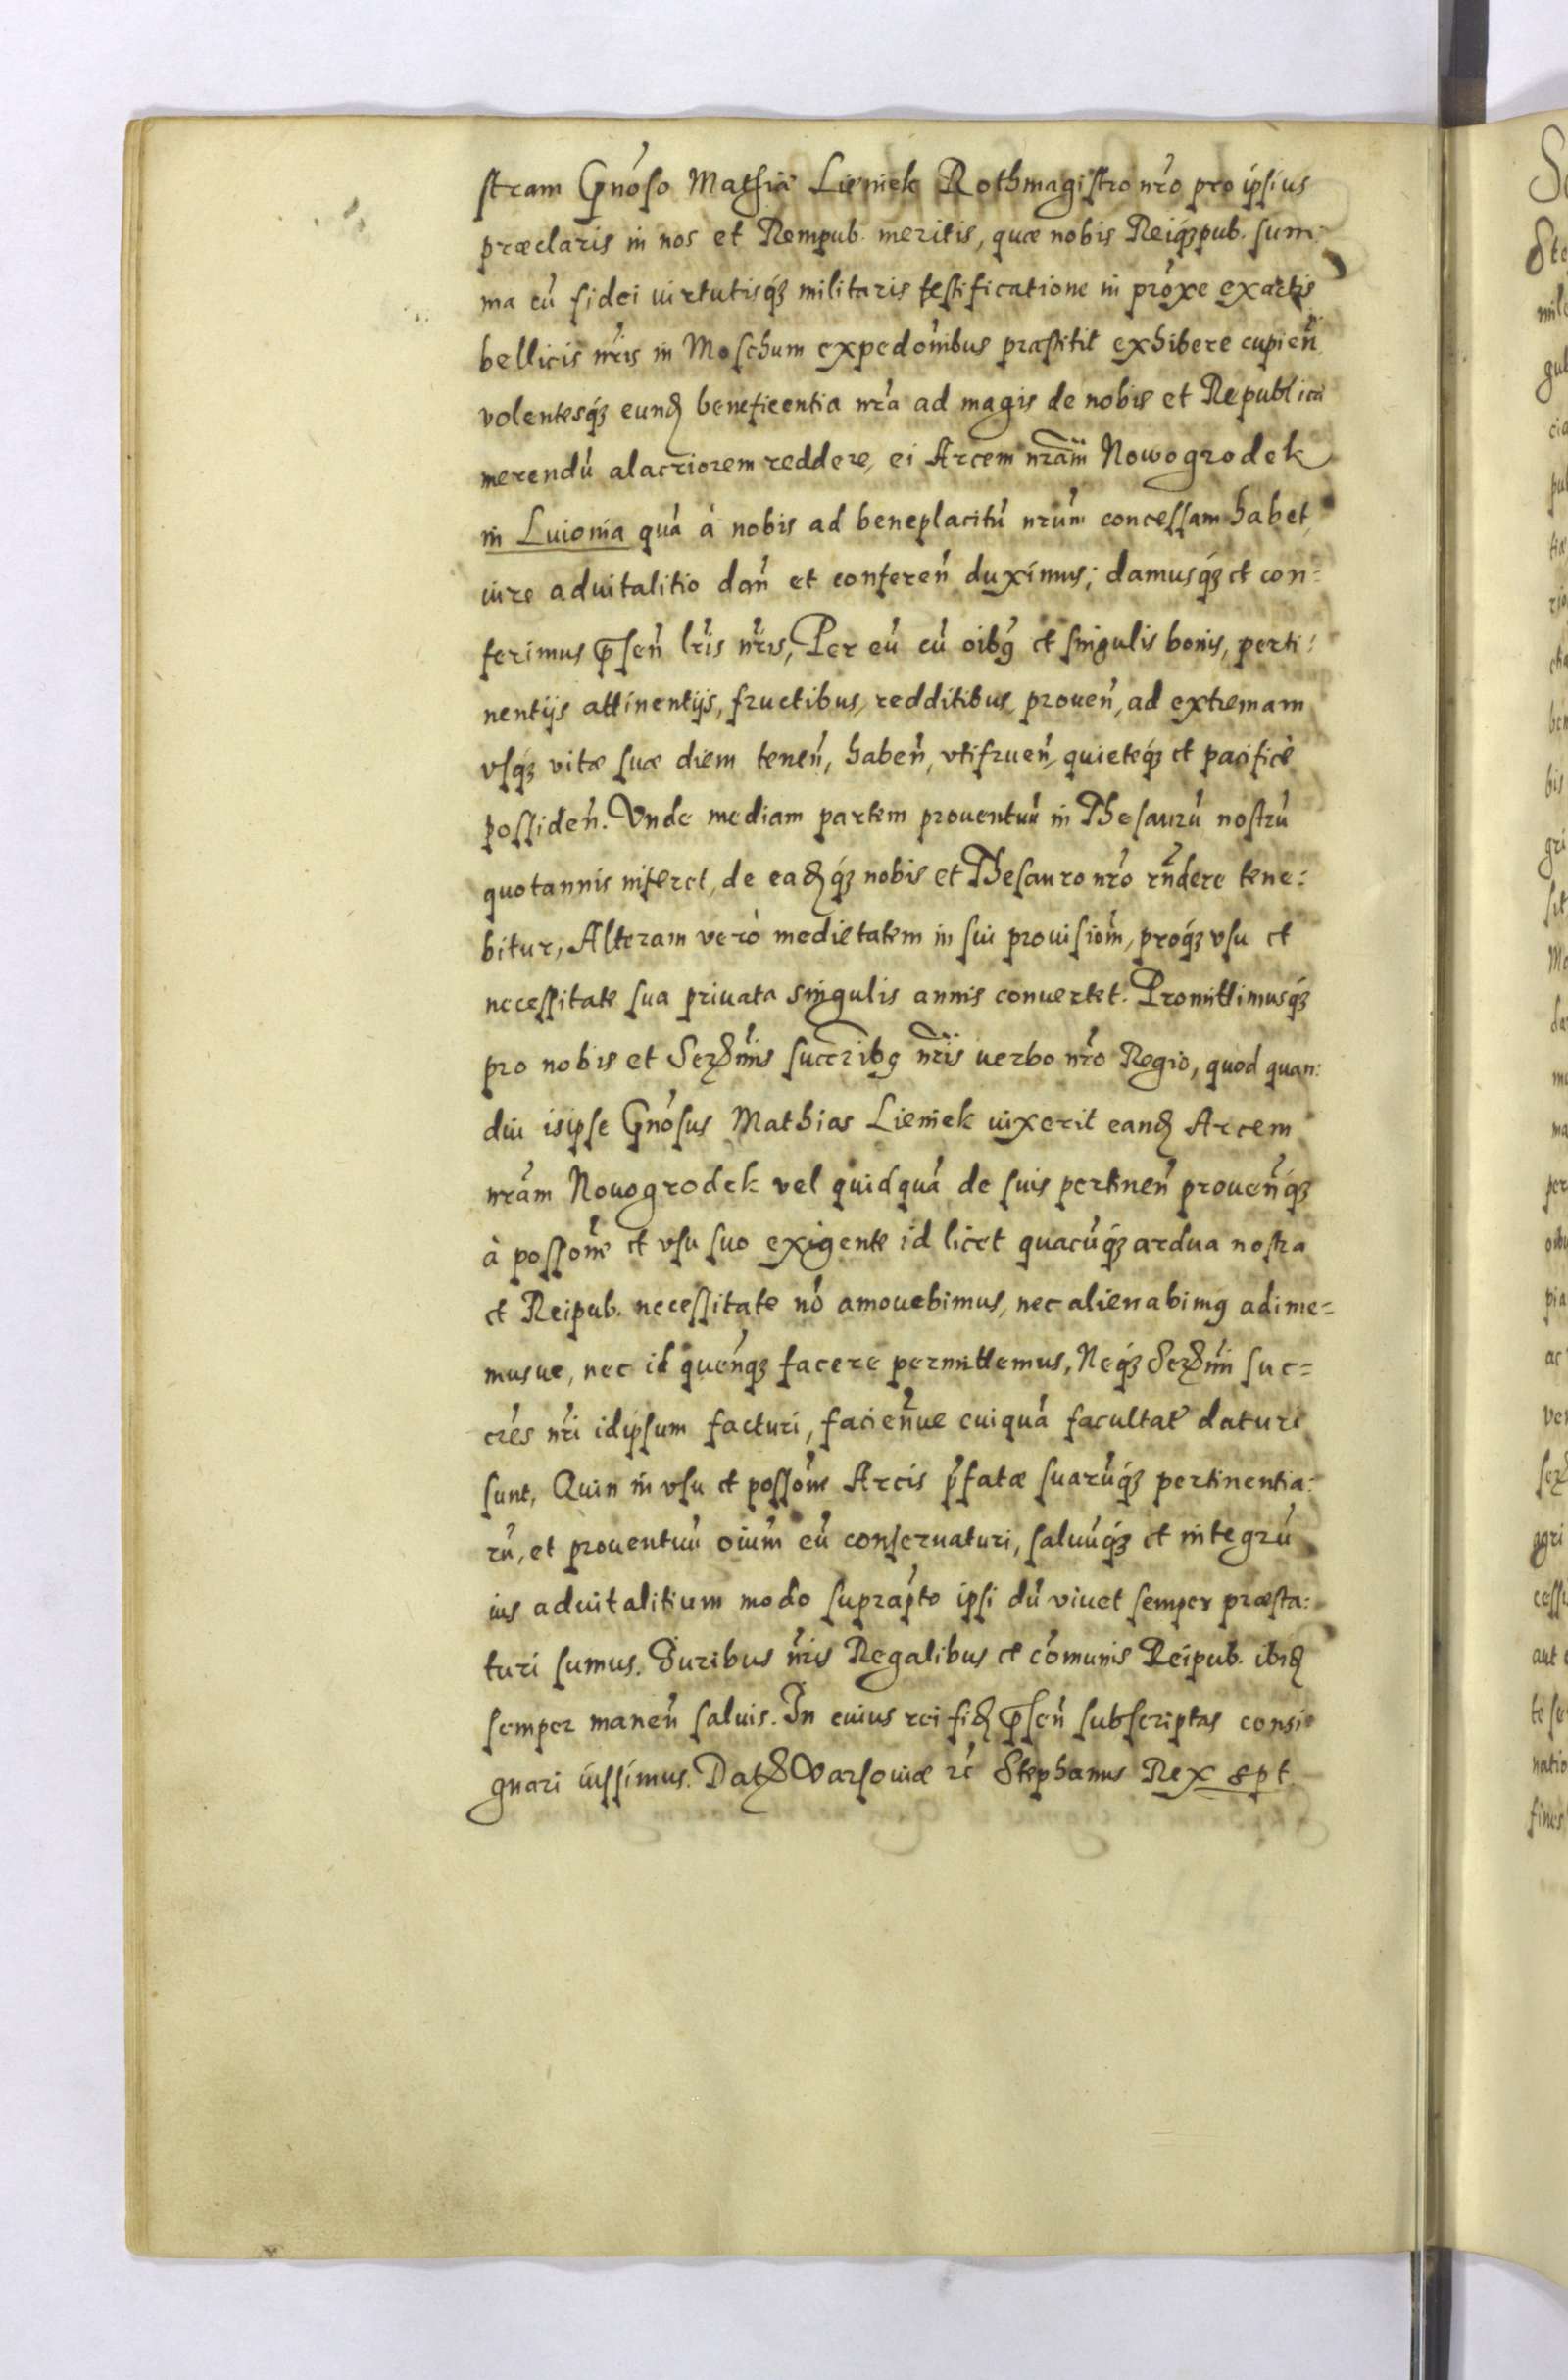 stram Gnoso Mathiæ Lieniek Rothmagistro nro pro ipsius
præclaris in nos et Rempub. meritis, quæ nobis Reiqꝫpub. sum:
ma cū fidei uirtutisqꝫ militaris testificatione in proxe exactis
bellicis nris in Moschum expedonibus præstitit exhibere cupien̄
volentesqꝫ eund beneficentia nra ad magis de nobis et Republica
merendū alacriorem reddere, ei Arcem nram Nowogrodek
in Liuonia quā à nobis ad beneplacitū nrum concessam habet,
iure aduitalitio dan̄ et conferen̄ duximus; damusqꝫ et con=
ferimus p̄sen̄ lris nris, Per eū cū oibꝰ et singulis bonis, perti:
nentijs attinentijs, fructibus, redditibus prouen̄, ad extremam
vsqꝫ vitæ suæ diem tenen̄, haben̄, vtifruen̄, quieteqꝫ et pacificè
possiden̄. Vnde mediam partem prouentuū in Thesaurū nostrū
quotannis inferet, de eadqꝫ nobis et Thesauro nro rn̄dere tene:
bitur, Alteram verò medietatem in sui prouisiom̄, proqꝫ vsu et
necessitate sua priuata singulis annis conuertet. Promittimusqꝫ
pro nobis et Serꝫmis succribꝰ nris uerbo nro Regio, quod quan:
diu is ipse Gnosus Mathias Lieniek uixerit eand Arcem
nram Nouogrodek vel quidquā de suis pertinen̄ prouen̄qꝫ
à possom̄e et vsu suo exigente id licet quacūqꝫ ardua nostra
et Reipub. necessitate nō amouebimus, nec alienabimꝰ adime=
musue, nec id quenqꝫ facere permittemus, Neqꝫ Serꝫmi suc=
cres nri idipsum facturi, facien̄ue cuiquā facultatē daturi
sunt, Quin in vsu et possone Arcis p̄fatæ suarūqꝫ pertinentia:
rū, et prouentuū oium eū conseruaturi, saluūqꝫ et integrū
ius aduitalitium modo suprapto ipsi dū viuet semper præsta:
turi sumus. Iuribus nris Regalibus et cōmunis Reipub. ibid
semper manen̄ saluis. In cuius rei fid p̄sen̄ subscriptas consi
gnari iussimus. Datꝫ Varsouiæ rc̄ Stephanus Rex spt